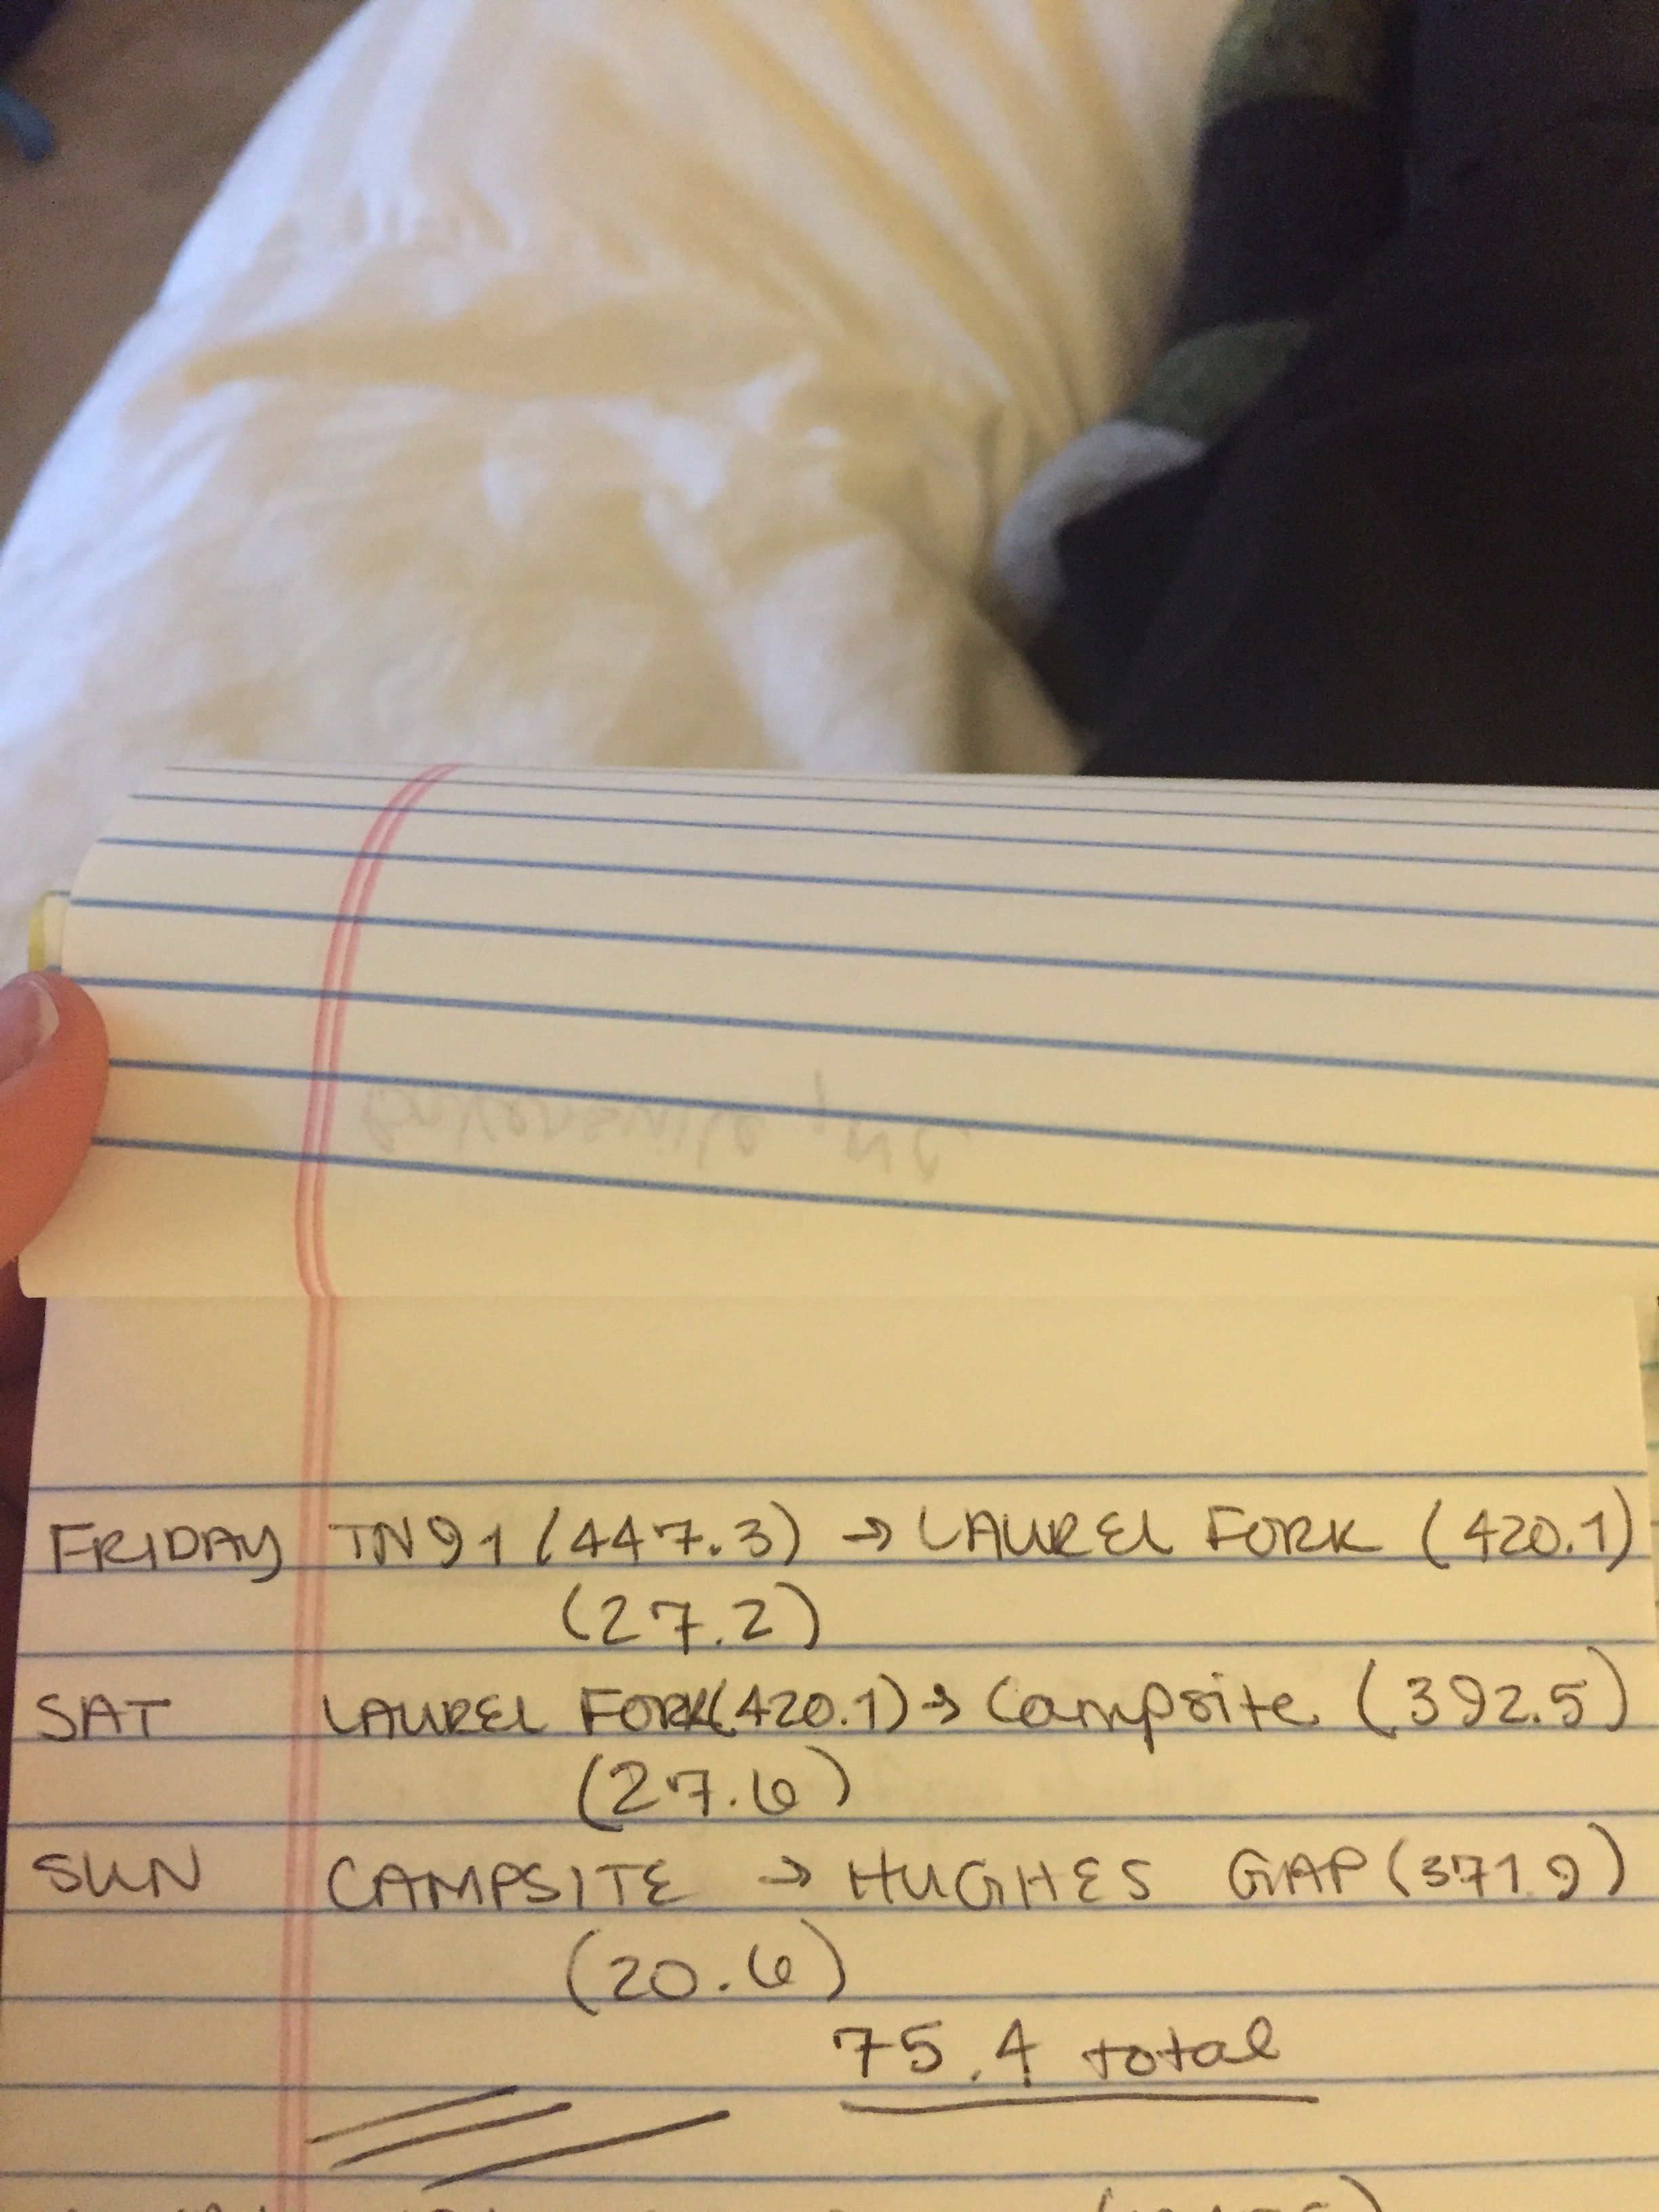 FRIDAY TN91 (447.3) → LAUREL FORK (420.1)
(27.2)
SAT LAUREL FORK (420.1) → Campsite (392.5)
(27.6)
SUN CAMPSITE → HUGHES GAP (371.9)
(20.6)
75.4 total